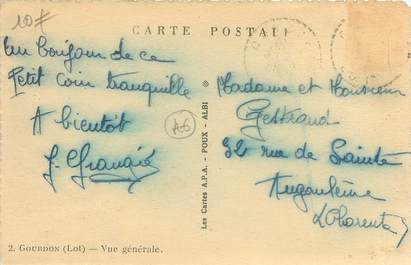 10F
CARTE POSTALE
Un bonjour de ce
Petit coin tranquille
A bientôt
A6
Les Cartes A.P.A. - POUX - ALBI
Madame et Monsieur
Bertrand
32 rue de Sainte
Angoulême
Charente
2. GOURDON (Lot) — Vue générale.